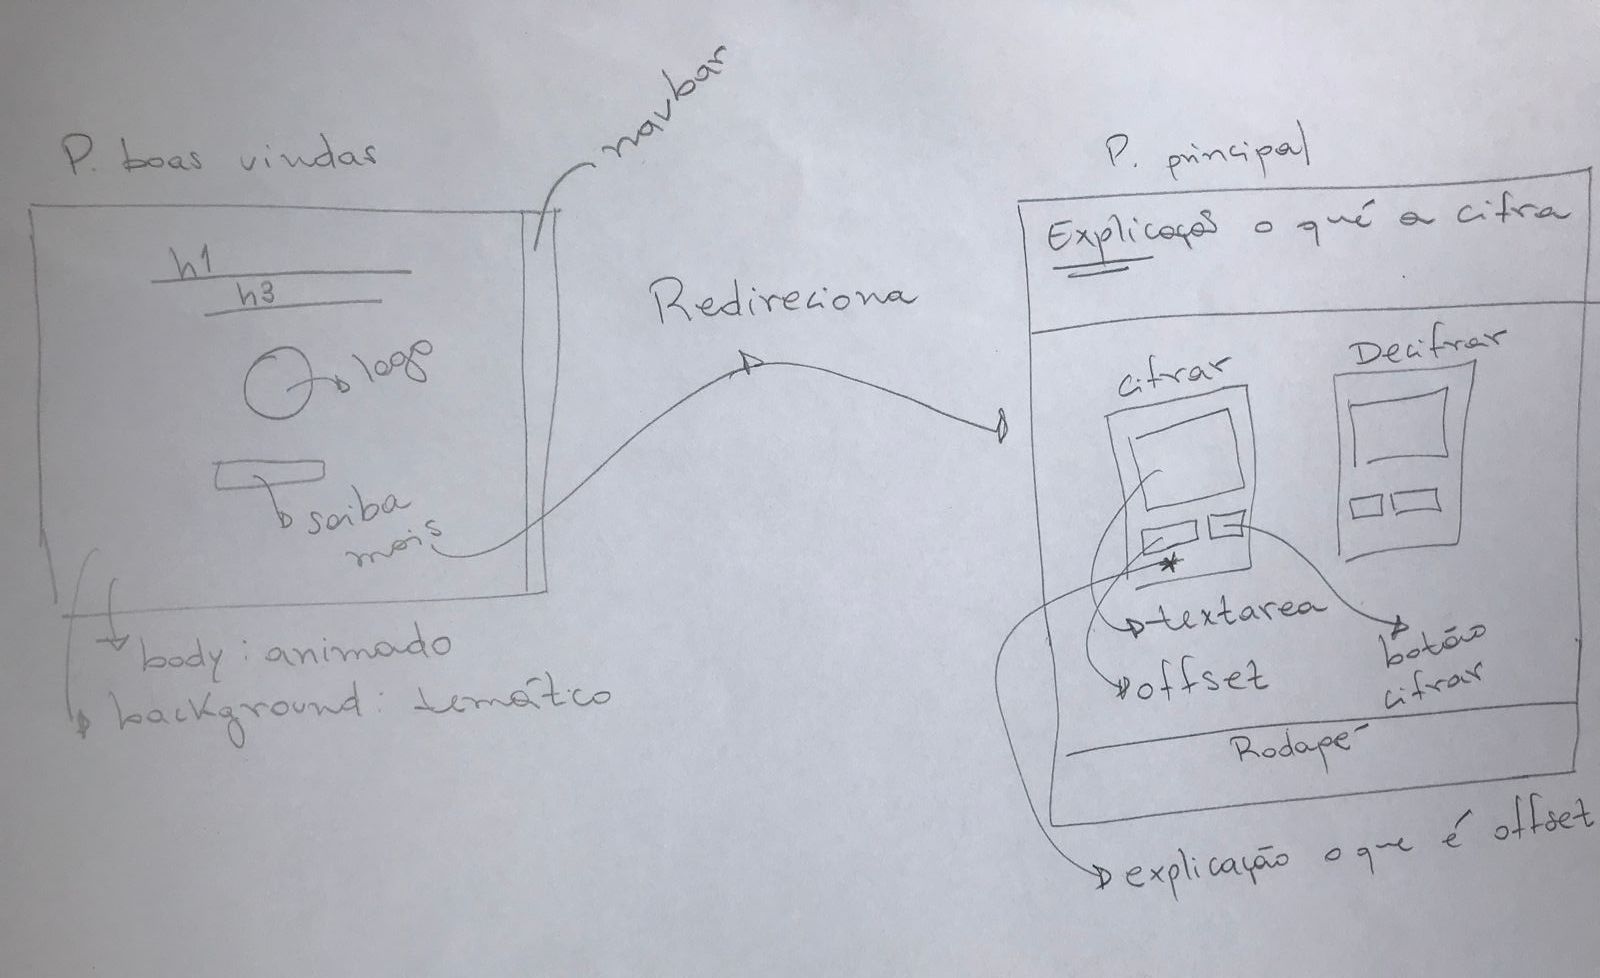 P. boas vindas
navbar
h1
h3
logo
saiba
mais
body: animado
background: temático
Redireciona
P. principal
Explicação o qué a cifra
cifrar
Decifrar
*
textarea
offset
botão
cifrar
Rodapé
explicação o que é offset